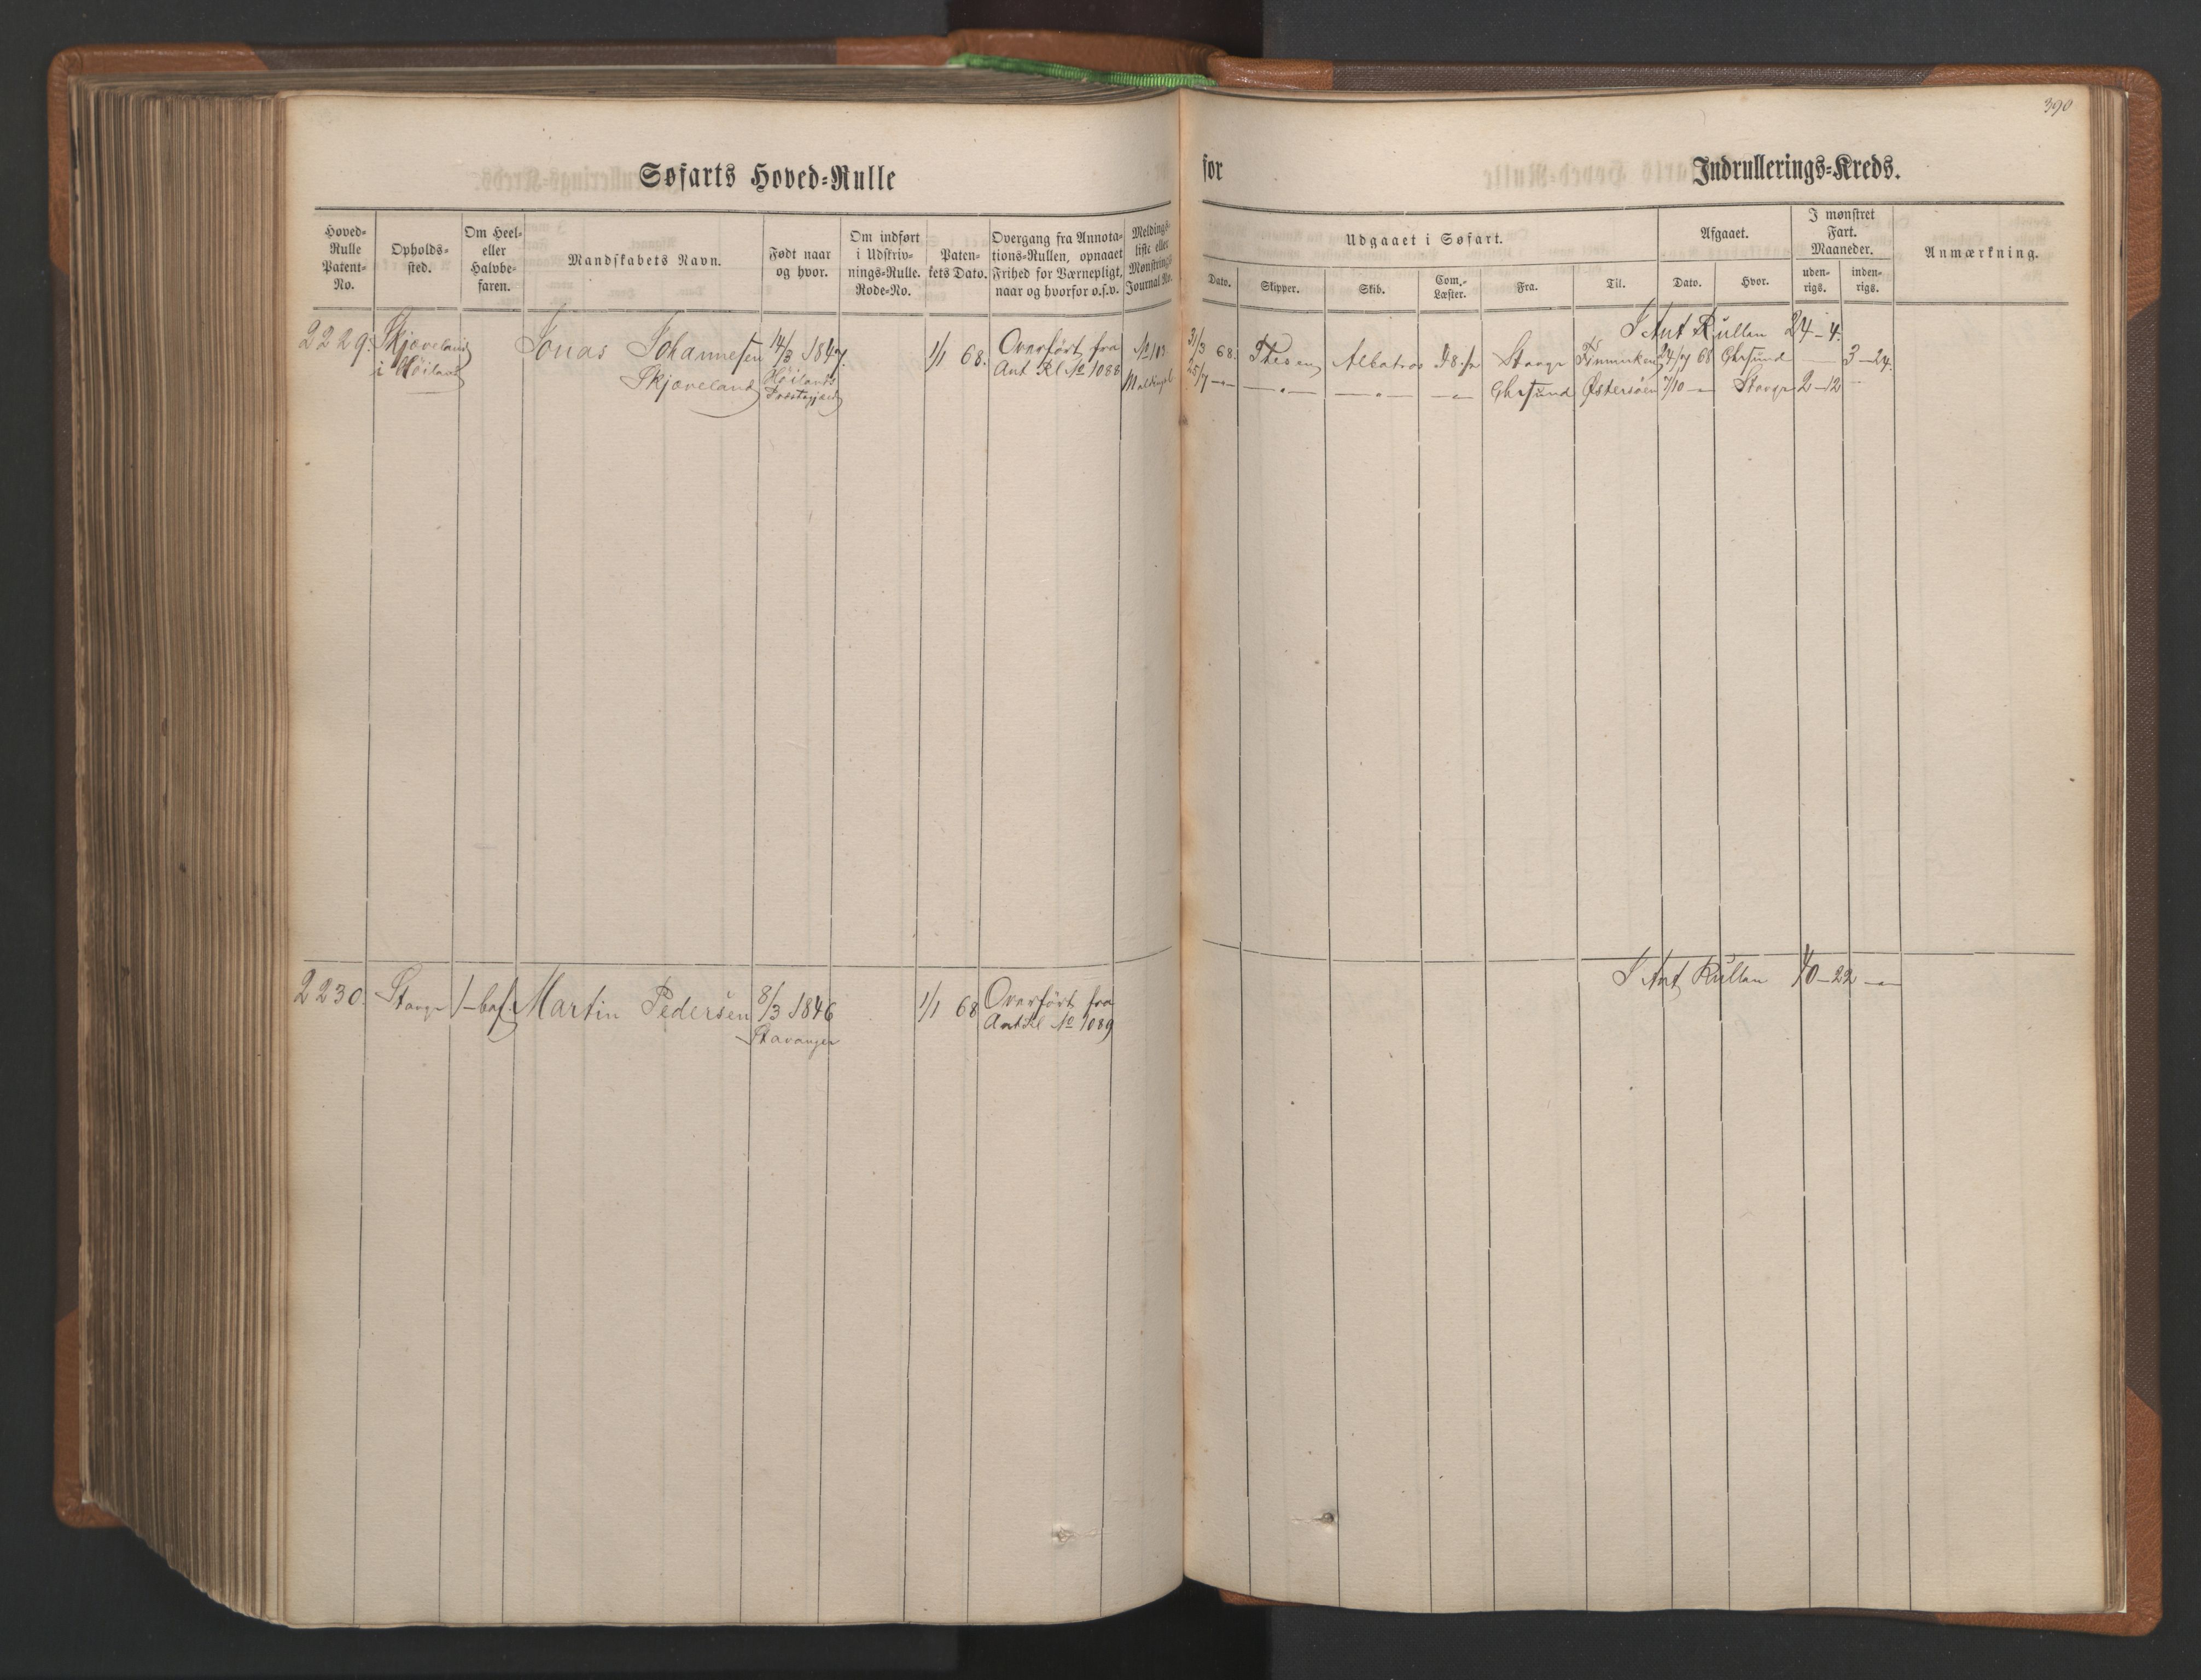 390
Søfarts Hoved-Rulle
for
Indrullerings-Kreds.
Hoved-
Rulle
Patent-
No.
Opholds-
sted.
Om Heel-
eller
Halvbe-
faren.
Mandskabets Navn.
Født naar
og hvor.
Om indført
i Udskriv-
nings-Rulle.
Rode-No.
Paten-
tets Dato.
Overgang fra Annota-
tions-Rullen, opnaaet
Frihed for Værnepligt,
naar og hvorfor o.s.v.
Meldings-
liste eller
Mønstrings-
Journal No.
Udgaaet i Søfart.
Dato.
Skipper.
Skib.
Com.-
Læster.
Fra.
Til.
Afgaaet.
Dato.
Hvor.
I mønstret
Fart.
Maaneder.
uden-
rigs.
inden-
rigs.
Anmærkning.
2229.
Skjæveland
i Höiland
Jonas Johannesen
Skjæveland
14/3 1847.
Höilands
Præstegjæld
1/1 68.
Overført fra
Ant Rl No 1088
I Ant Rullen 24-4.
31/3 68. Albatros Stavgr Finmarken 24/7 68 Chrsund — 3-24.
25/7 —"— —"— —"— —"— Chrsund Østersøen 7/10 —"— Stavgr 2-12
2230.
Stavgr
1-bef
Martin Pedersen
8/3 1846
Stavanger
1/1 68
Overført fra
Ant Rl No 1089
I Ant Rullen 40-22 —"—